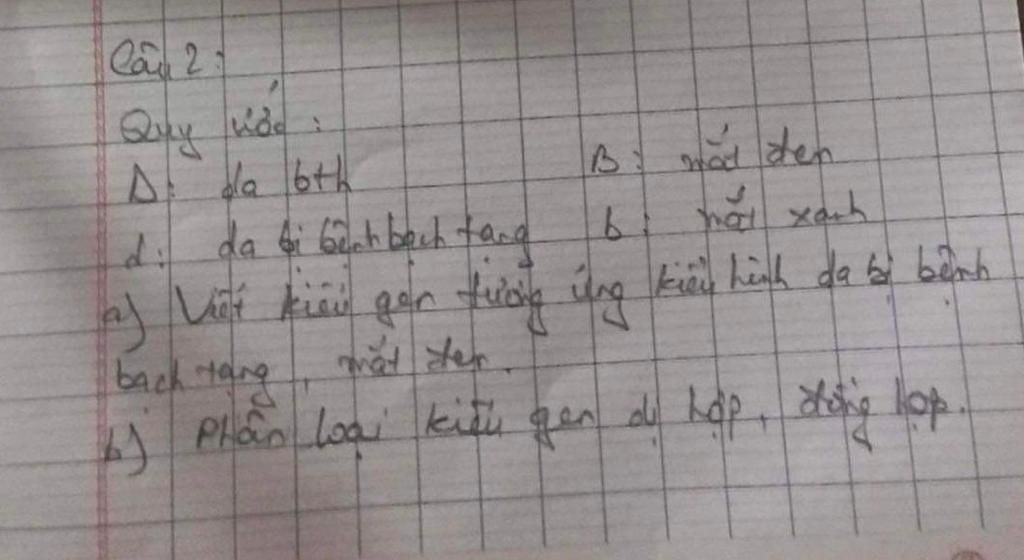 Câu 2:
Quy ước:
D: da bth B: mắt đen
d: da bị bệnh bạch tạng b: mắt xanh
a) Viết kiểu gen tương ứng kiểu hình da bị bệnh
bạch tạng, mắt đen.
b) Phân loại kiểu gen dị hợp, đồng hợp.